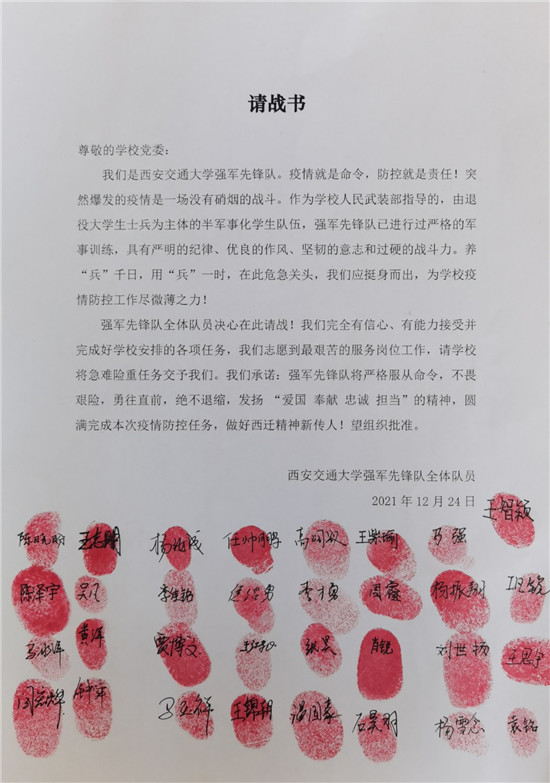 请战书
尊敬的学校党委：
我们是西安交通大学强军先锋队。疫情就是命令，防控就是责任！突
然爆发的疫情是一场没有硝烟的战斗。作为学校人民武装部指导的，由退
役大学生士兵为主体的半军事化学生队伍，强军先锋队已进行过严格的军
事训练，具有严明的纪律、优良的作风、坚韧的意志和过硬的战斗力。养
“兵”千日，用“兵”一时，在此危急关头，我们应挺身而出，为学校疫
情防控工作尽微薄之力！
强军先锋队全体队员决心在此请战！我们完全有信心、有能力接受并
完成好学校安排的各项任务，我们志愿到最艰苦的服务岗位工作，请学校
将急难险重任务交予我们。我们承诺：强军先锋队将严格服从命令，不畏
艰险，勇往直前，绝不退缩，发扬 “爱国 奉献 忠诚 担当”的精神，圆
满完成本次疫情防控任务，做好西迁精神新传人！望组织批准。
西安交通大学强军先锋队全体队员
2021 年 12 月 24 日
王智颖
马强
陈泽宇 吴凡 周鑫 杨振翔
黄洋 贾博文 肖锐 刘世扬 王思宇
王锦翔 石昊羽 袁铭